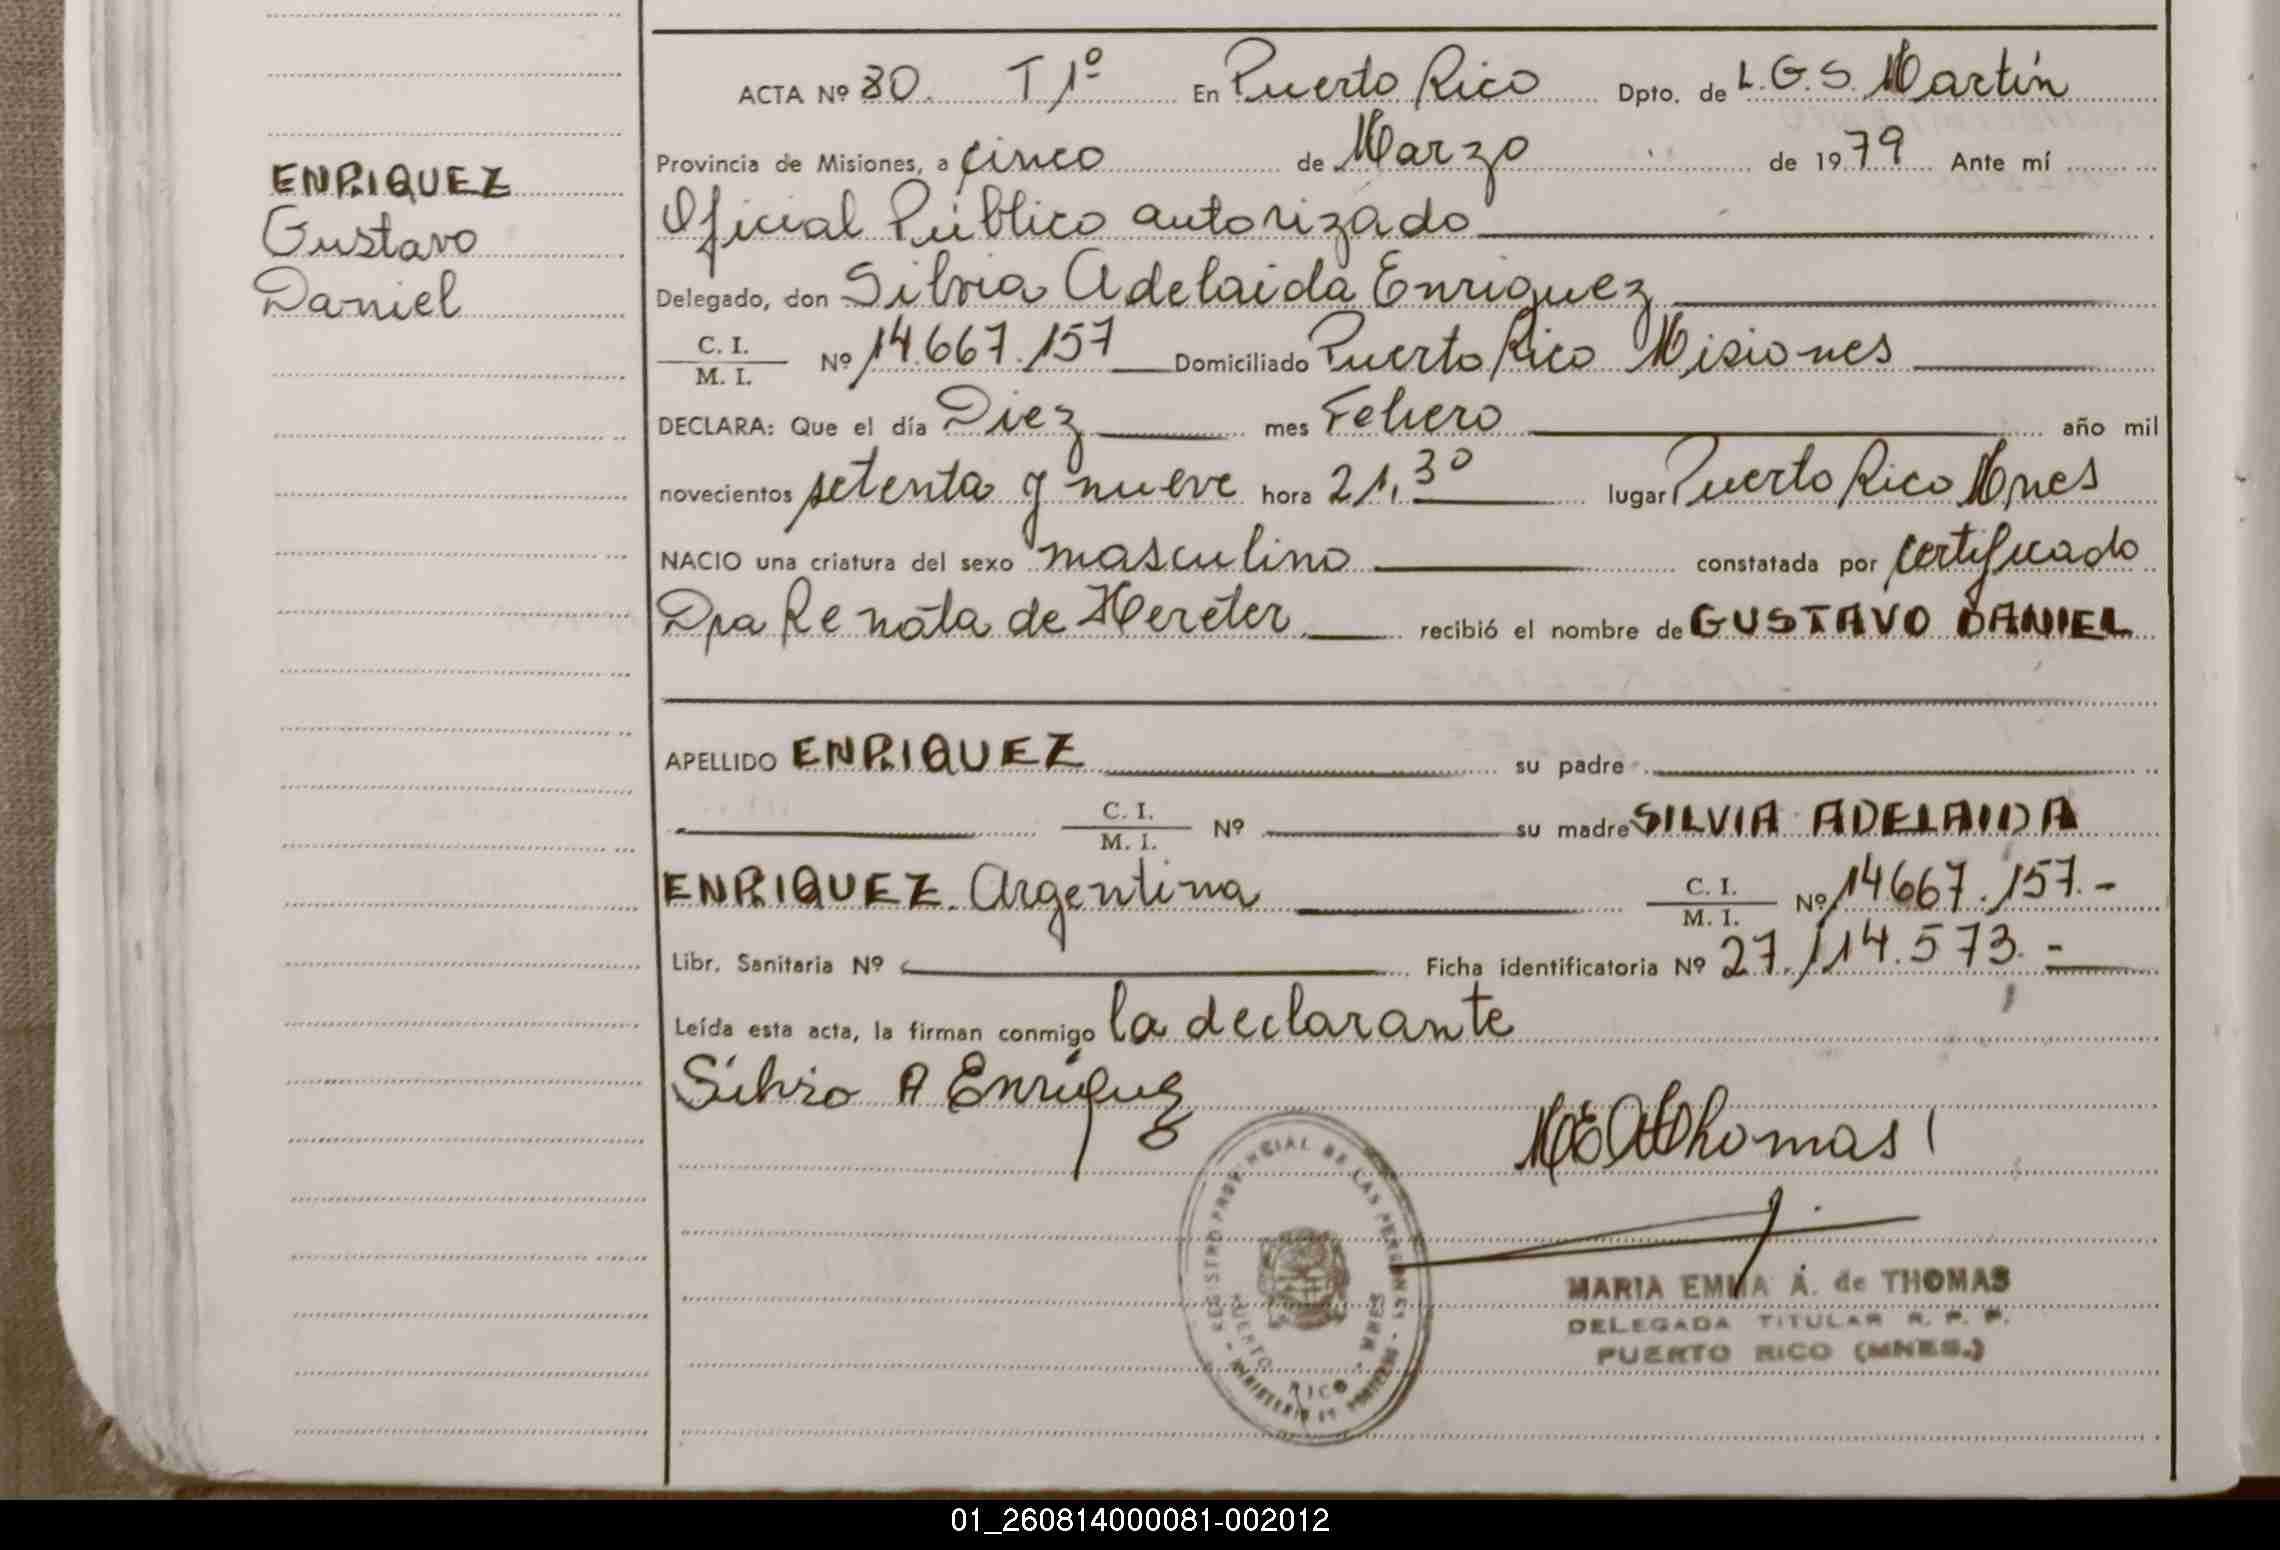 ACTA Nº 80. T 1º En Puerto Rico Dpto. de L.G.S. Martín
Provincia de Misiones, a cinco de Marzo de 1979 Ante mí
Oficial Público autorizado
Delegado, don Silvia Adelaida Enriquez
C. I.
M. I. Nº 14.667.157 Domiciliado Puerto Rico Misiones
DECLARA: Que el día Diez mes Febrero año mil
novecientos setenta y nueve hora 21,30 lugar Puerto Rico Mnes
NACIO una criatura del sexo masculino constatada por certificado
Dra Renata de Hereter recibió el nombre de GUSTAVO DANIEL
APELLIDO ENRIQUEZ su padre
C. I.
M. I. Nº su madre SILVIA ADELAIDA
ENRIQUEZ. Argentina C. I.
M. I. Nº 14667.157.-
Libr. Sanitaria Nº Ficha identificatoria Nº 27.114.573.-
Leída esta acta, la firman conmigo la declarante
Silvia A Enriquez
M E A Thomas
REGISTRO PROVINCIAL DE LAS PERSONAS
PUERTO RICO - MNES
MARIA EMMA A. de THOMAS
DELEGADA TITULAR R. P. P.
PUERTO RICO (MNES.)
ENRIQUEZ
Gustavo
Daniel
01_260814000081-002012